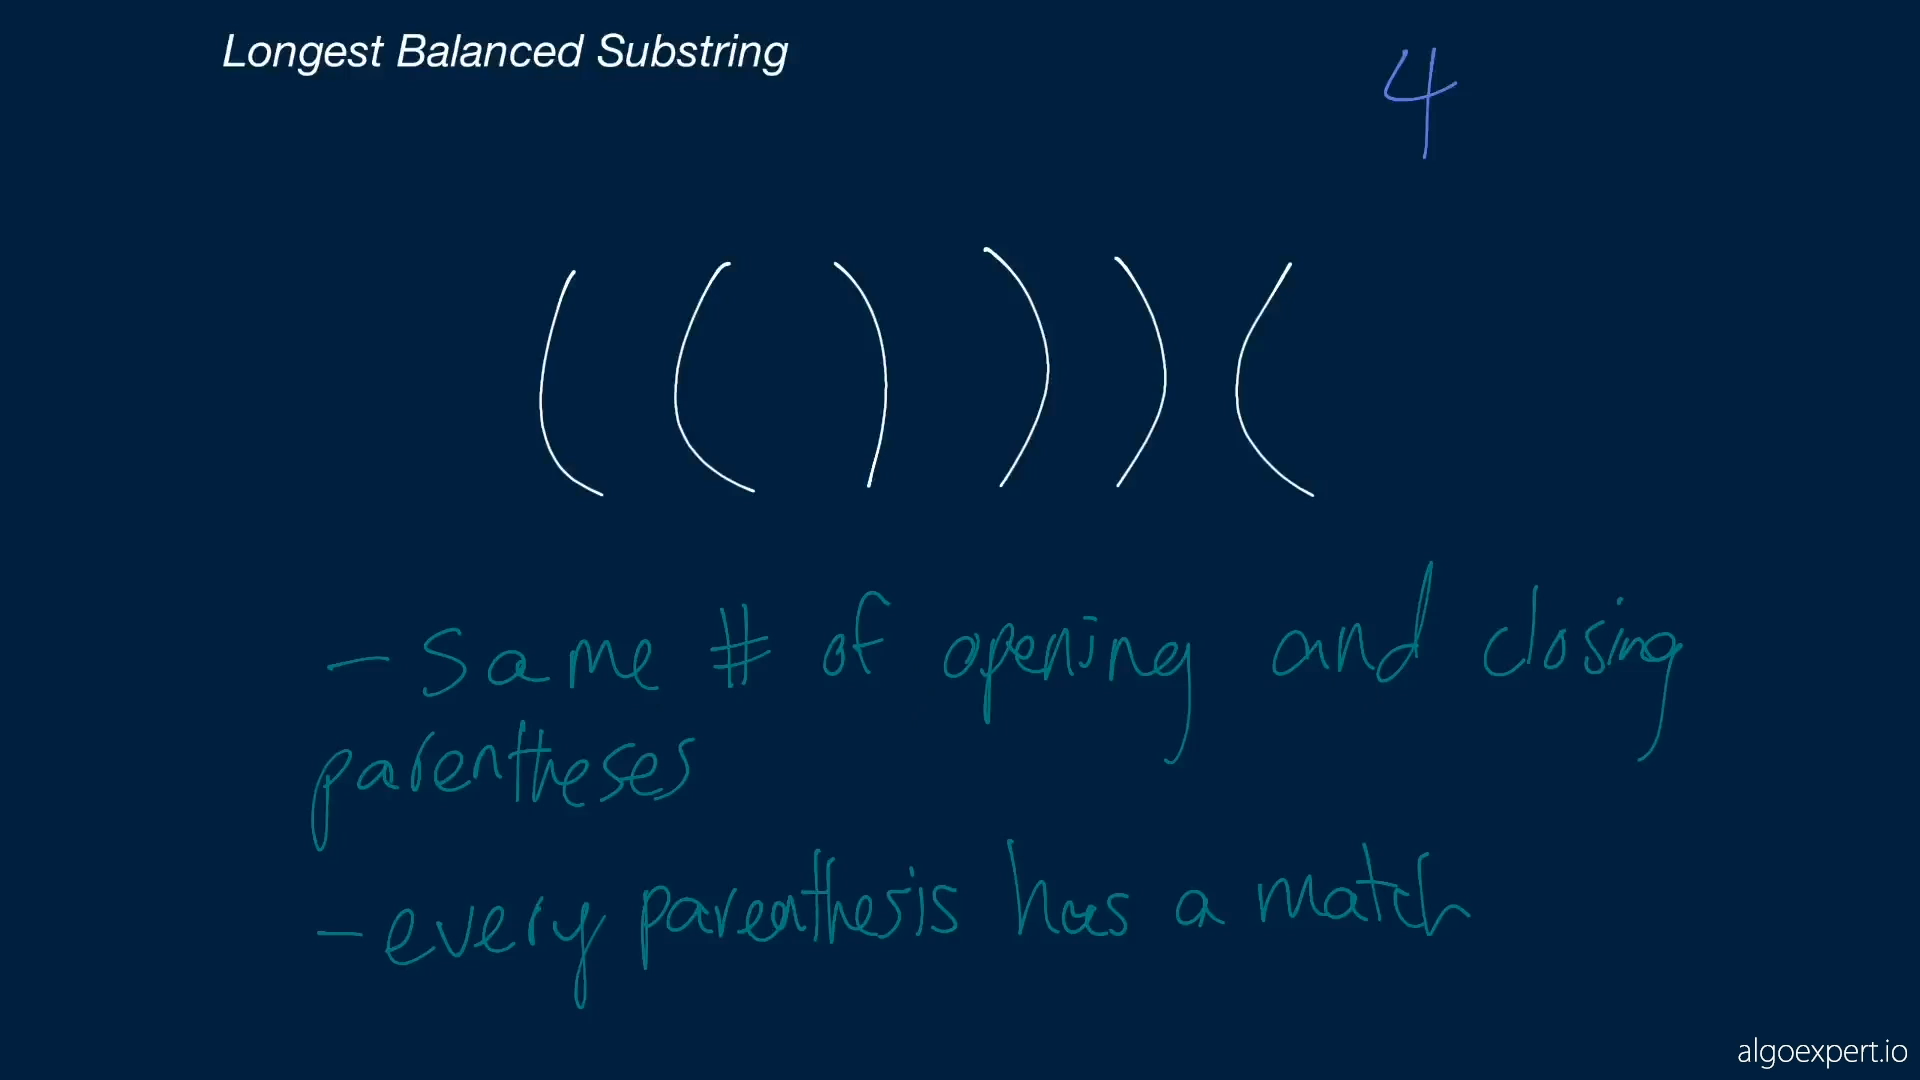 Longest Balanced Substring
4
( ( ) ) ) (
- Same # of opening and closing
parentheses
- every parenthesis has a match
algoexpert.io